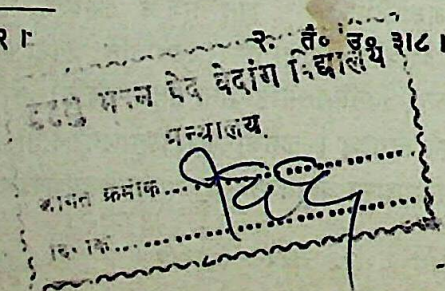 २।
२. तै० उ० ३।८।
भवन वेद वेदांग विद्यालय
ग्रन्थालय.
आगत क्रमांक...
दिनांक...